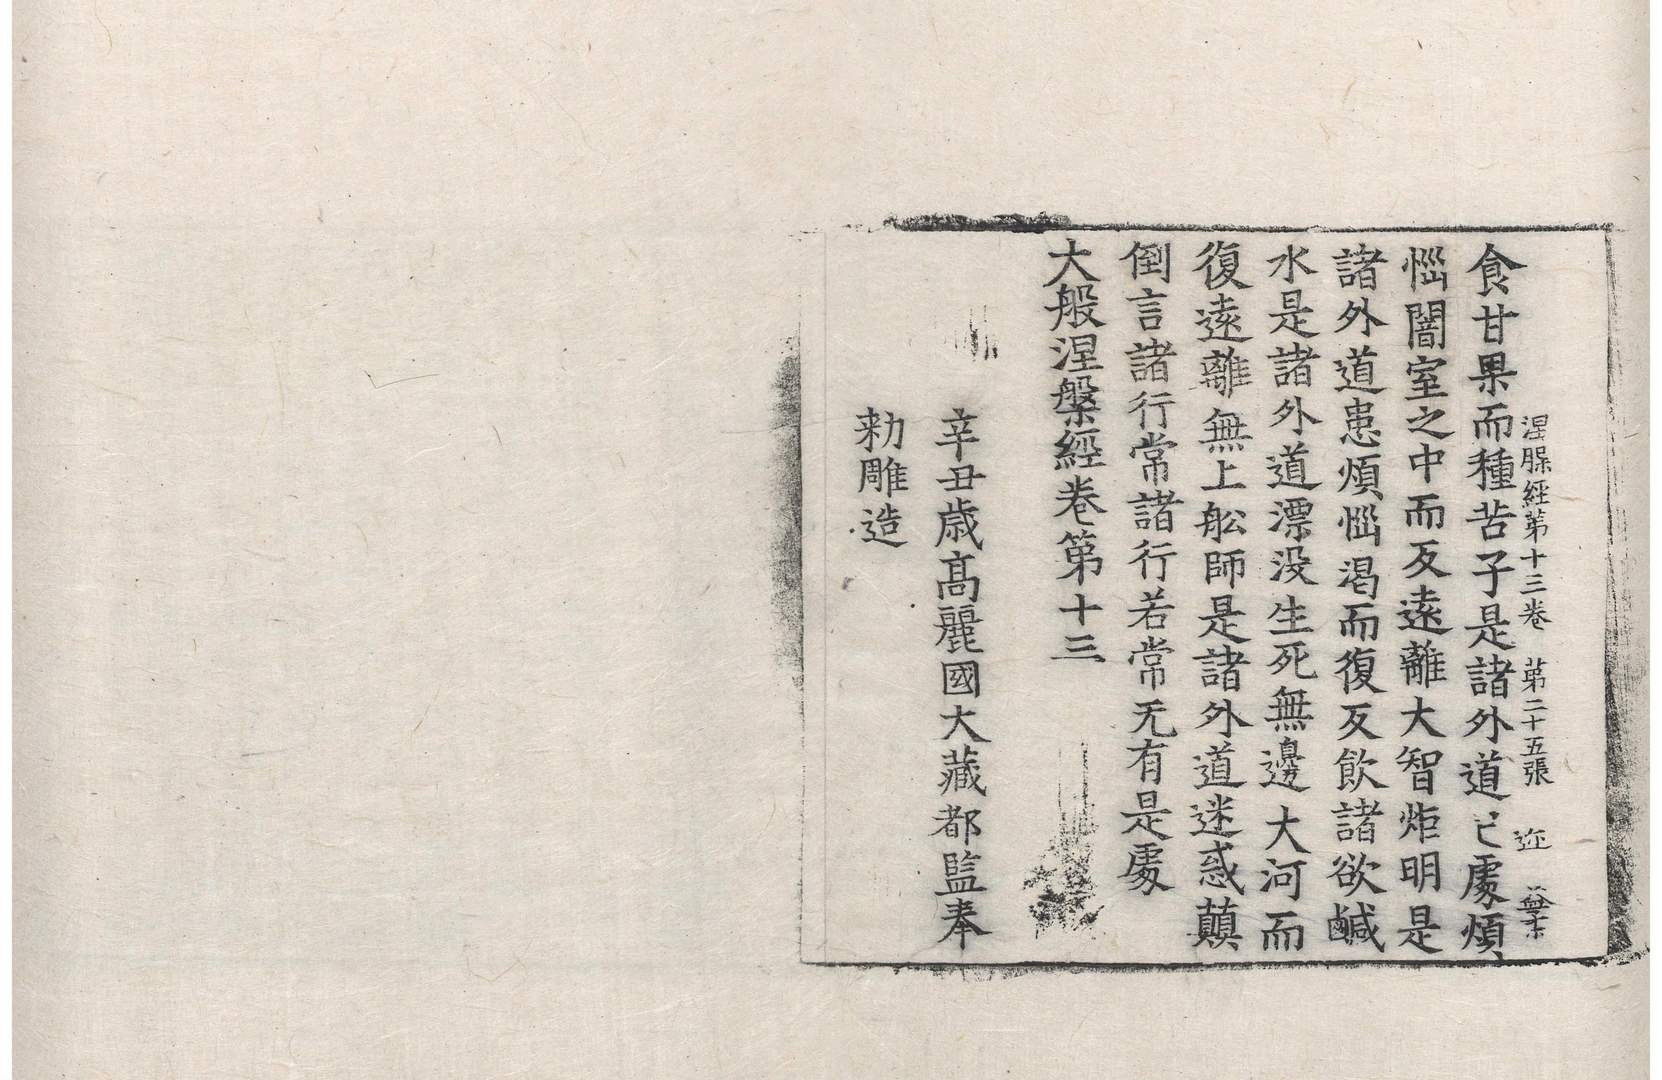 涅槃經第十三卷 第二十五張 迩
食甘果而種苦子是諸外道已處煩
惱闇室之中而反遠離大智炬明是
諸外道患煩惱渴而復反飲諸欲鹹
水是諸外道漂没生死無邊大河而
復遠離無上舩師是諸外道迷惑顛
倒言諸行常諸行若常无有是處
大般涅槃經卷第十三
辛丑歳高麗國大藏都監奉
勑雕造